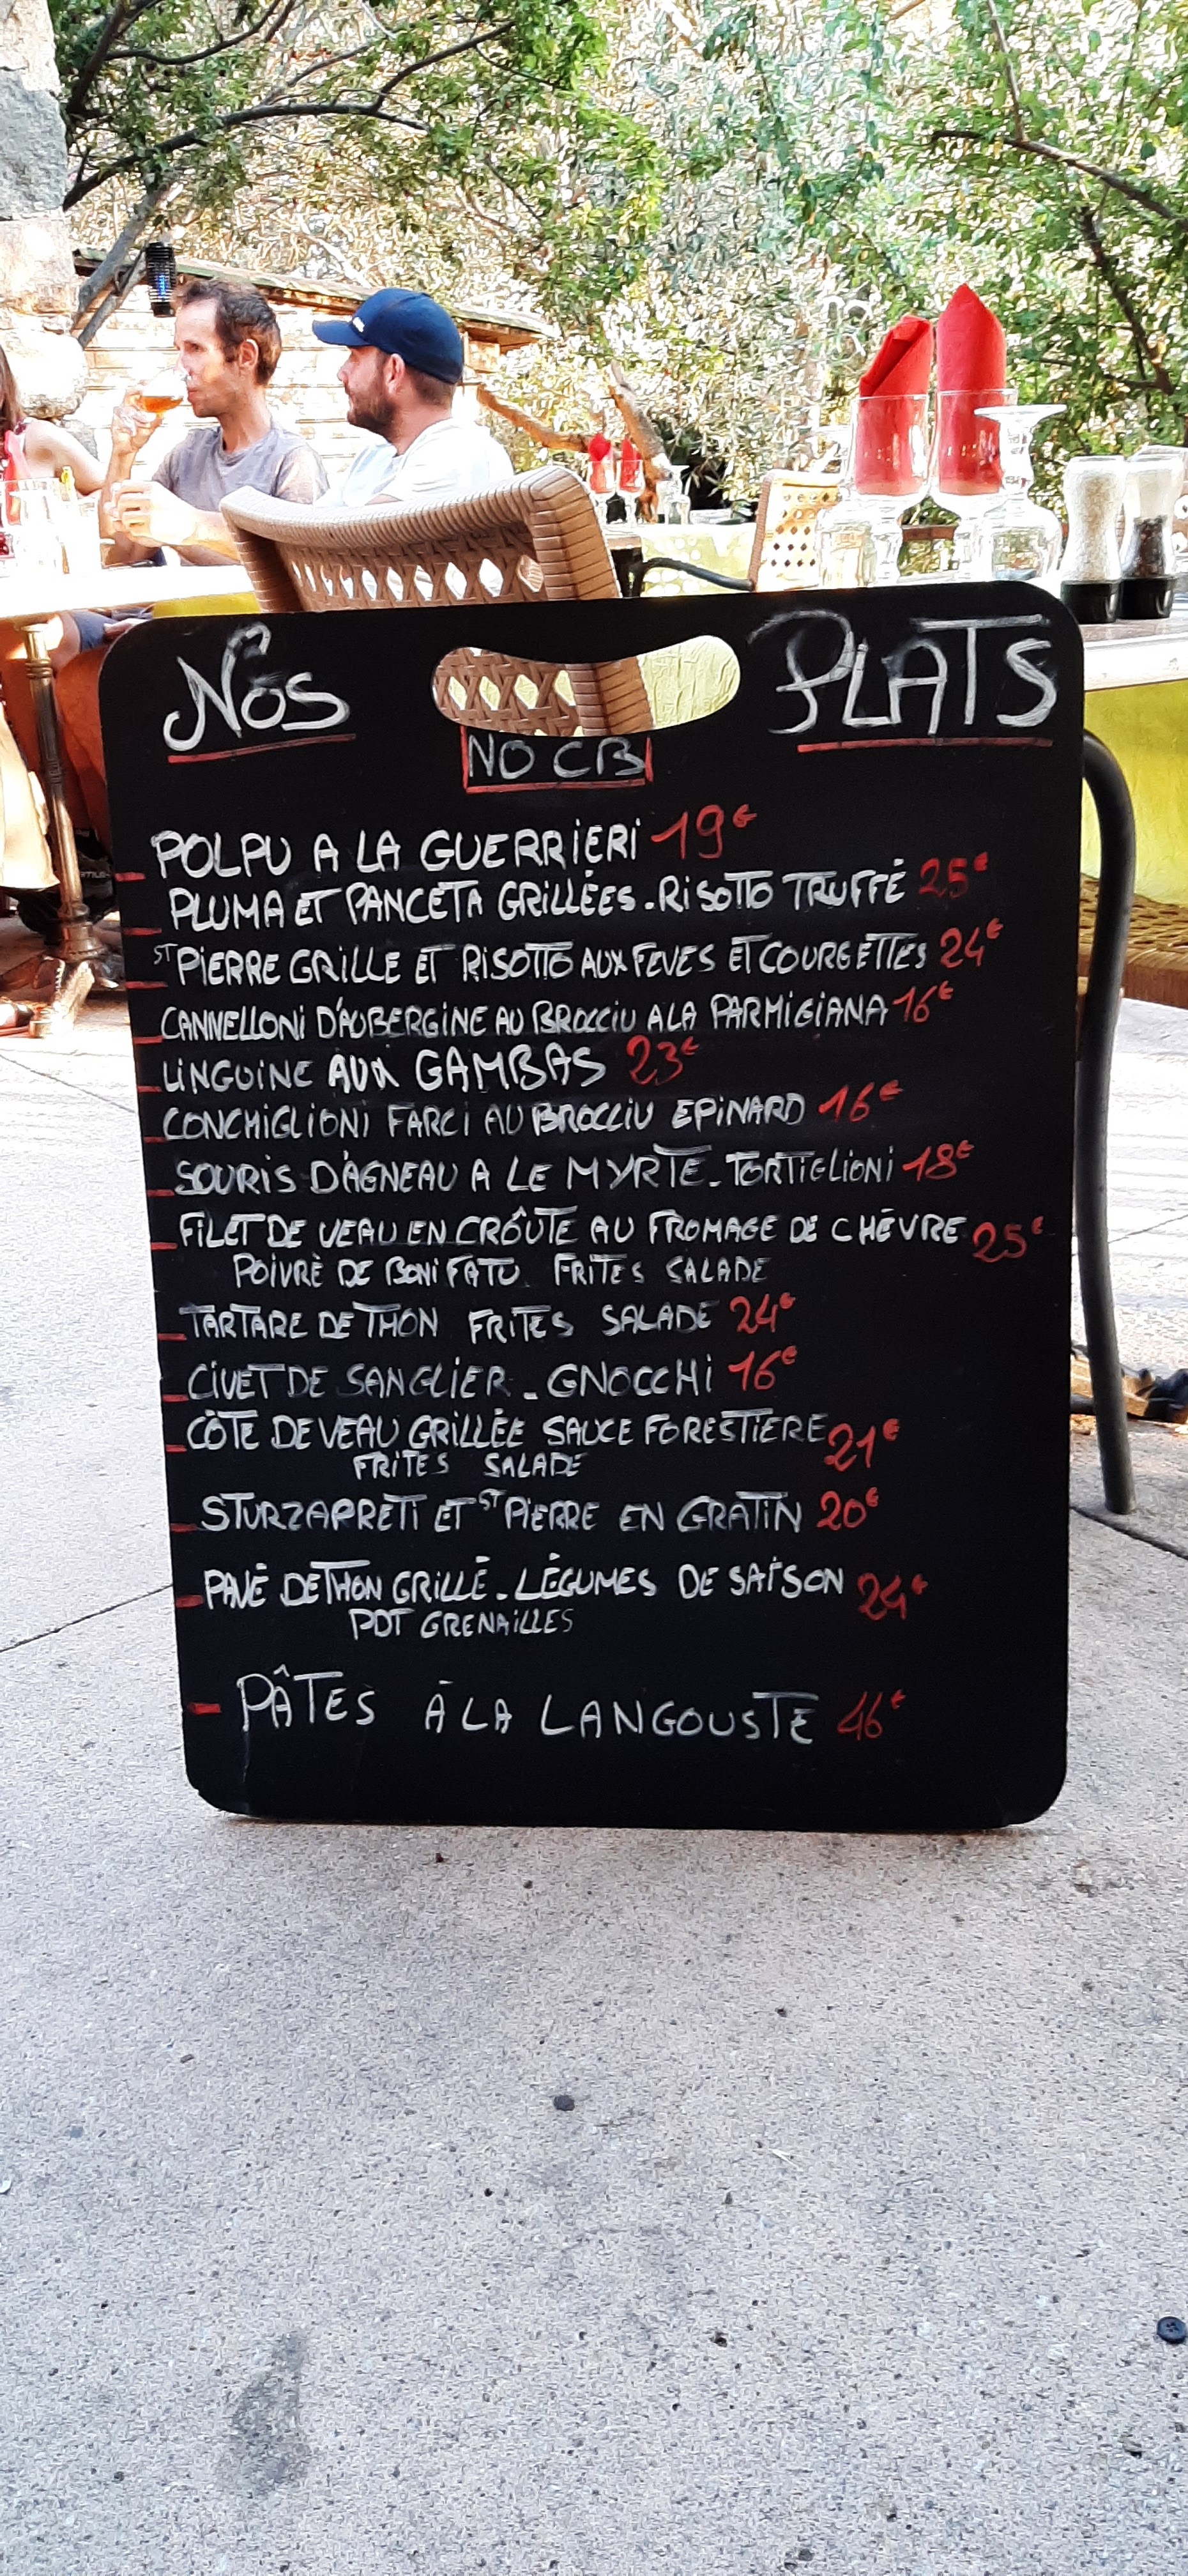 Nos PLATS
NO CB
POLPU A LA GUERRIERI 19€
PLUMA ET PANCETA GRILLÉES - RISOTTO TRUFFÉ 25€
ST PIERRE GRILLE ET RISOTTO AUX FEVES ET COURGETTES 24€
CANNELLONI D'AUBERGINE AU BROCCIU A LA PARMIGIANA 16€
LINGUINE AUX GAMBAS 23€
CONCHIGLIONI FARCI AU BROCCIU EPINARD 16€
SOURIS D'AGNEAU A LE MYRTE - TORTIGLIONI 18€
FILET DE VEAU EN CROÛTE AU FROMAGE DE CHÈVRE 25€
POIVRE DE BONIFATU FRITES SALADE
TARTARE DE THON FRITES SALADE 24€
CIVET DE SANGLIER - GNOCCHI 16€
CÔTE DE VEAU GRILLÉE SAUCE FORESTIERE 21€
FRITES SALADE
STURZAPRETI ET ST PIERRE EN GRATIN 20€
PAVÉ DE THON GRILLÉ - LÉGUMES DE SAISON 24€
PDT GRENAILLES
PÂTES À LA LANGOUSTE 46€